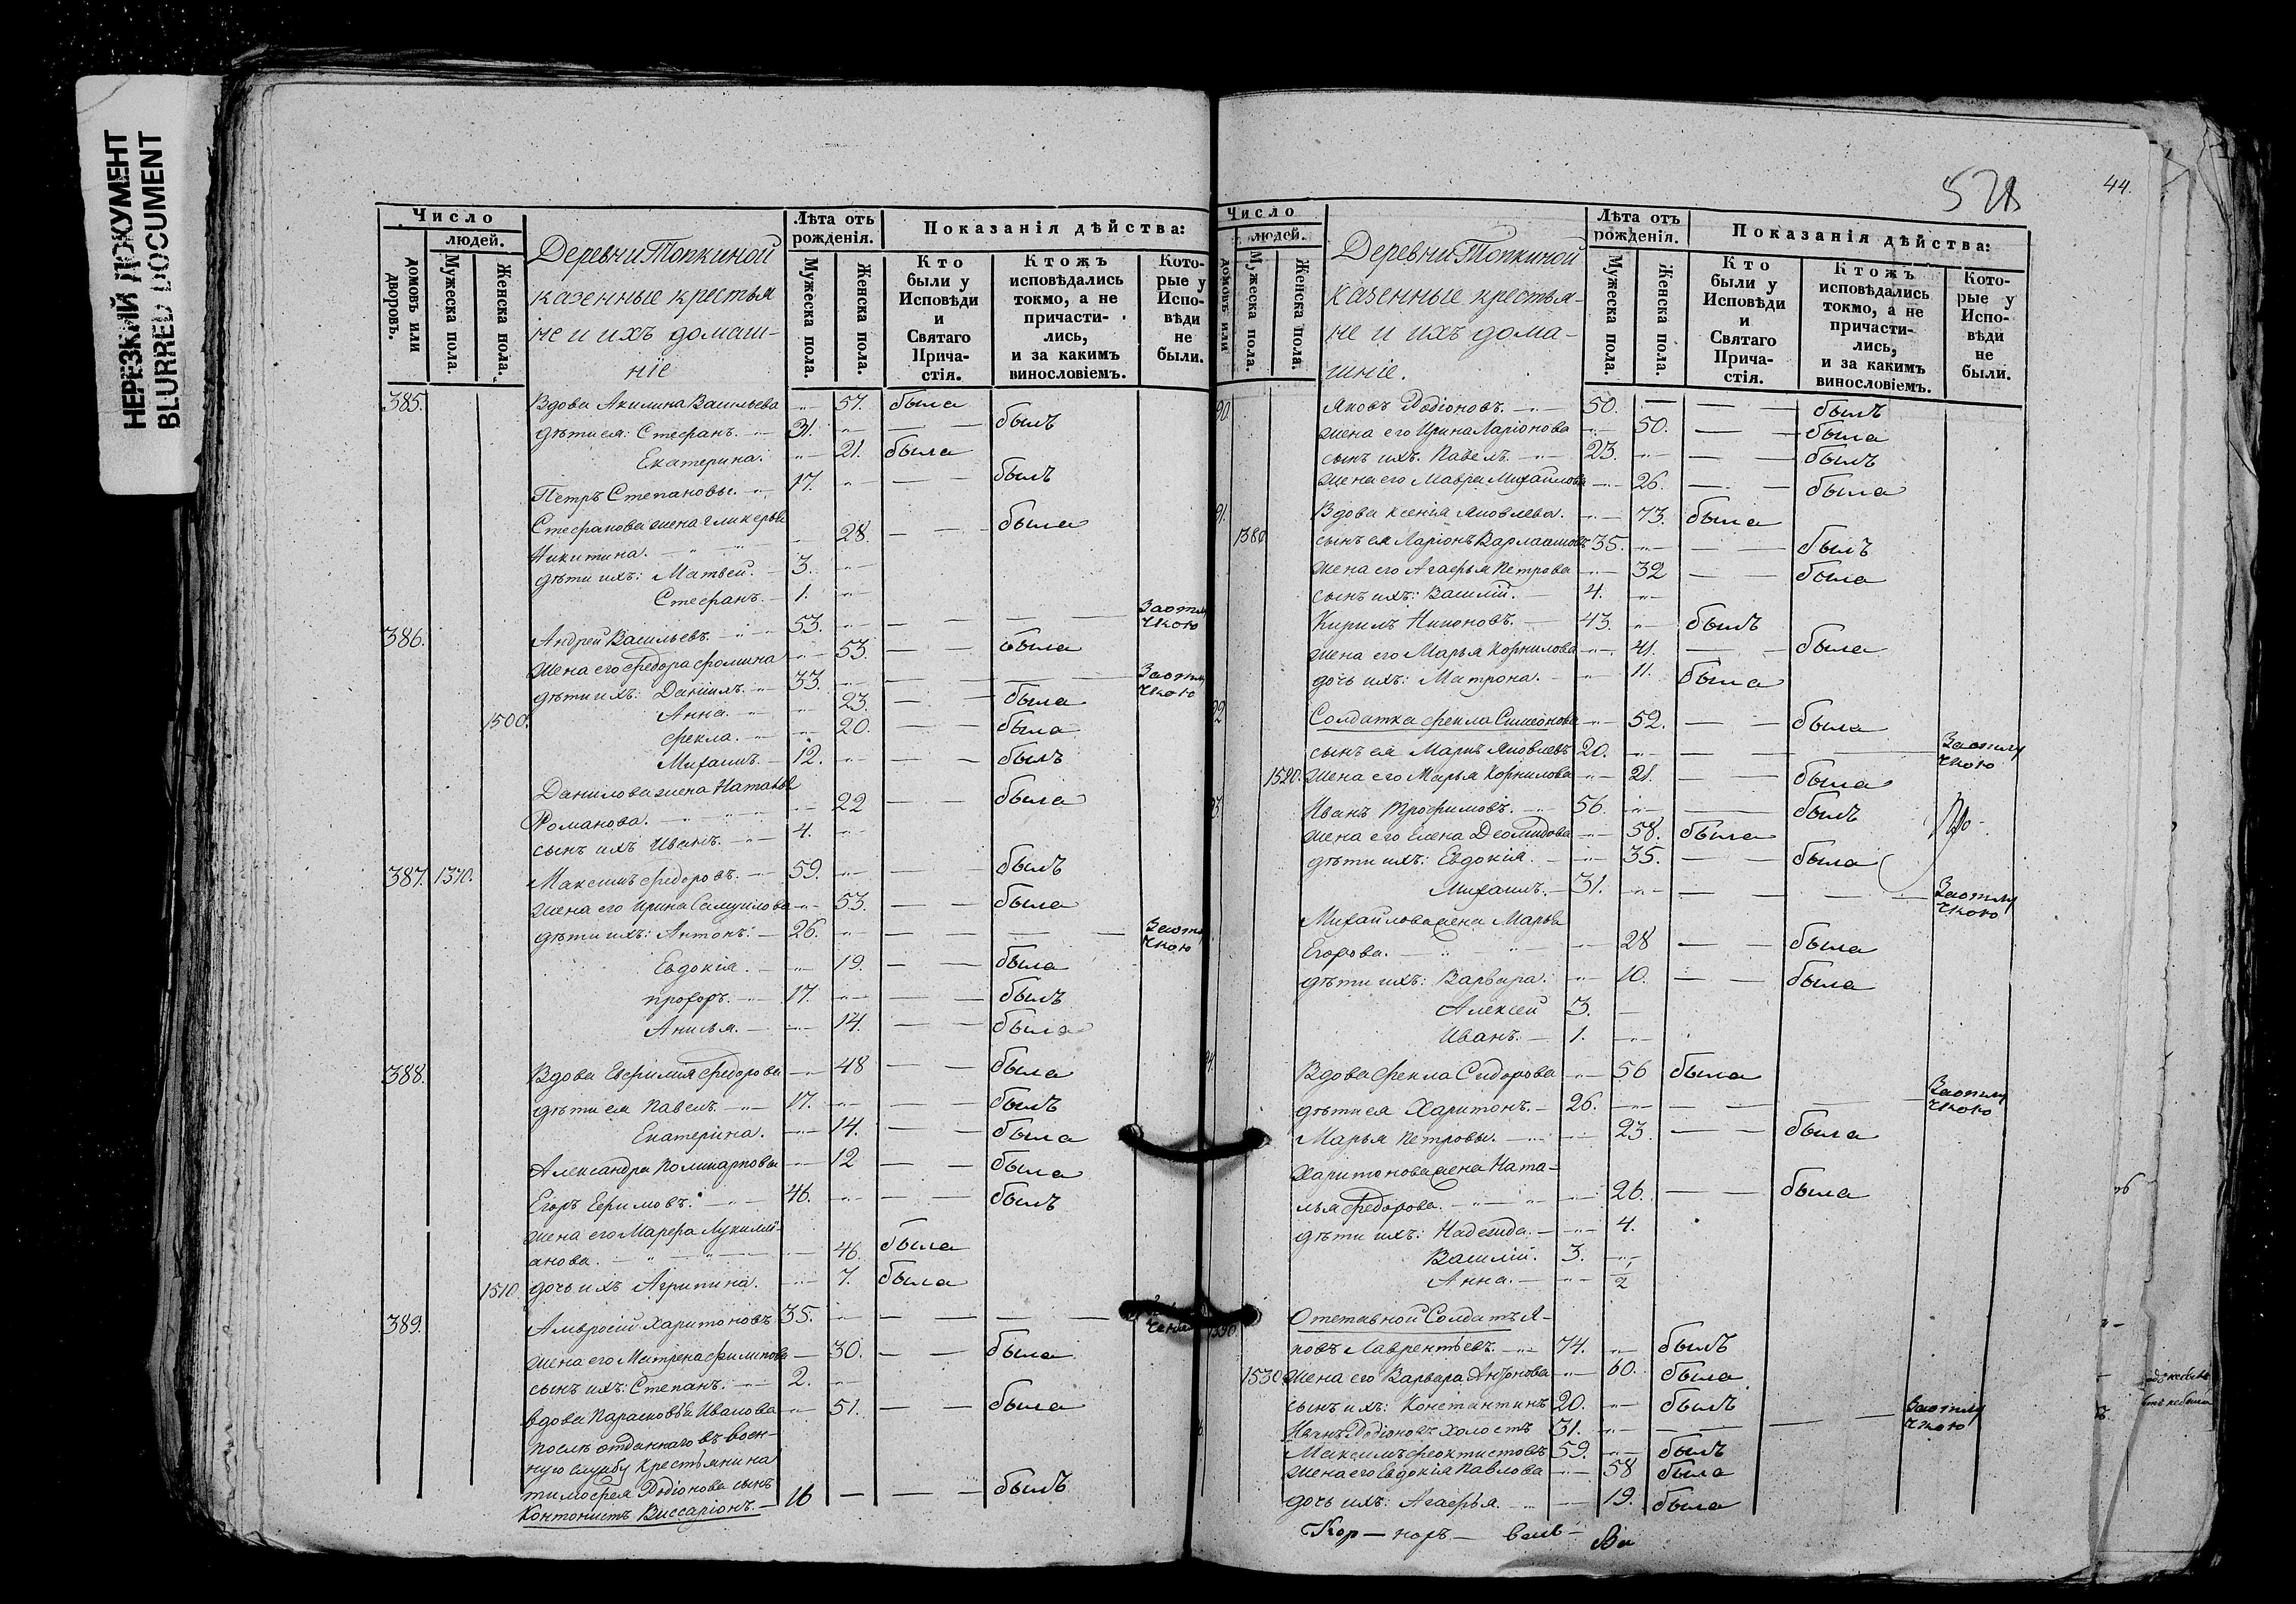 НЕРЕЗКИЙ ДОКУМЕНТ
BLURRED DOCUMENT
44.
Число
людей.
домовъ или дворовъ.
Мужеска пола.
Женска пола.
Деревни Топкиной
казенные крестья
не и ихъ домаш-
ніе
Лѣта отъ рожденія.
Мужеска пола.
Женска пола.
Показанія дѣйства:
Кто были у Исповѣди и Святаго Прича-стія.
Ктожъ исповѣдались токмо, а не причасти-лись, и за какимъ винословіемъ.
Кото-рые у Испо-вѣди не были.
385. Вдова Акилина Васильева 57. была
дѣти ея: Стефанъ. 31. былъ
Екатерина. 21. была
Петръ Степановы. 17. былъ
Стефанова жена Гликерья
Никитина. 28. была
дѣти ихъ: Матвей. 3.
Стефанъ. 1.
386. Андрей Васильевъ. 53. За отлу чкою
жена его Федора Фомина 53. была
дѣти ихъ: Даніилъ. 33. За отлу чкою
1500. Анна. 23. была
Фекла. 20. была
Михаилъ. 12. былъ
Данилова жена Наталья
Романова. 22 была
сынъ ихъ Иванъ. 4.
387. 1370. Максимъ Федоровъ. 59. былъ
жена его Ирина Самуилова 53. была
дѣти ихъ: Антонъ. 26. За отлу чкою
Евдокія. 19. была
Прохоръ. 17. былъ
Анисья. 14. была
388. Вдова Евфимія Федорова 48 была
дѣти ея Павелъ. 17. былъ
Екатерина. 14. была
Александра Поликарповы 12 была
Егоръ Ефимовъ. 46. былъ
жена его Марфа Лукилли-
анова. 46. была
1510. дочь ихъ Агрипина. 7. была
389. Амвросій Харитоновъ 35. чкою
жена его Матрена Филипова 30. была
сынъ ихъ: Степанъ. 2.
вдова Парасковья Иванова 51. была
послѣ отданнаго въ воен-
ную службу крестьянина
Тимофея Родіонова сынъ
Контонистъ Виссаріонъ. 16 былъ
Число
людей.
домовъ или
Мужеска пола.
Женска пола.
Деревни Топкиной
казенные крестья-
не и ихъ дома-
шніе.
Лѣта отъ рожденія.
Мужеска пола.
Женска пола.
Показанія дѣйства:
Кто были у Исповѣди и Святаго Прича-стія.
Ктожъ исповѣдались токмо, а не причасти-лись, и за какимъ винословіемъ.
Кото-рые у Испо-вѣди не были.
90. Яковъ Родіоновъ. 50. былъ
жена его Ирина Ларіонова 50. была
сынъ ихъ: Павелъ. 23. былъ
жена его Мавра Михайлова 26. была
91. Вдова Ксенія Яковлева. 73. была
1380 сынъ ея Ларіонъ Варлаамовъ 35. былъ
жена его Агафья Петрова 32 была
сынъ ихъ: Василій. 4.
Кирилъ Никоновъ. 43. былъ
жена его Марья Корнилова 41. была
дочь ихъ: Матрона. 11. была
92 Солдатка Фекла Симеонова 52. была
сынъ ея Маркъ Яковлевъ 20. За отлу чкою
1520. жена его Марья Корнилова 21. была
93. Иванъ Трофимовъ. 56. былъ
жена его Елена Деомидова 58. была
дѣти ихъ: Евдокія. 35. была
Михаилъ. 31. За отлу чкою
Михайлова жена Марья
Егорова. 28 была
дѣти ихъ: Варвара. 10. была
Алексей 3.
Иванъ. 1.
94. Вдова Фекла Сидорова 56 была
дѣти ея Харитонъ. 26. За отлу чкою
Марья Петровы. 23. была
Харитонова жена Ната-
лья Федорова. 26. была
дѣти ихъ: Надежда. 4.
Василій. 3.
Анна. 1/2
Отставной Солдатъ Я-
ковъ Лаврентьевъ. 74. былъ
1530 жена его Варвара Антонова 60. была
сынъ ихъ: Константинъ 20. былъ
Иванъ Родіоновъ холостъ 31. За отлу чкою
Максимъ Феоктистовъ 59. былъ
жена его Евдокія Павлова 58 была
дочь ихъ: Агафья. 19. была